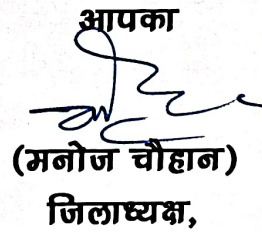 आपका
(मनोज चौहान)
जिलाध्यक्ष,